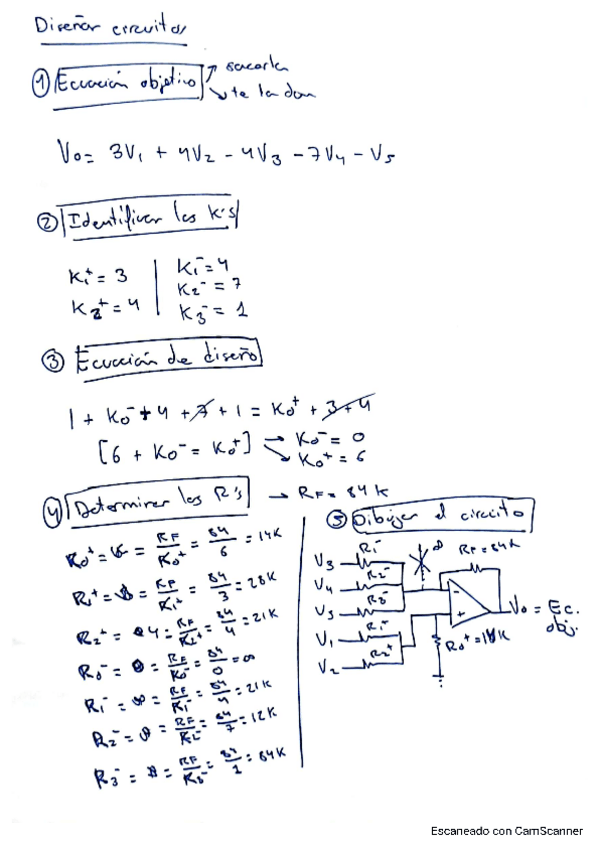 Diseñar circuitos
① Ecuación objetivo → sacarla
→ te la dan
Vo = 3V1 + 4V2 - 4V3 - 7V4 - V5
② Identificar los K's
K1+ = 3 | K1- = 4
K2+ = 4 | K2- = 7
K3- = 1
③ Ecuación de diseño
1 + Ko- + 4 + 7 + 1 = Ko+ + 3 + 4
[6 + Ko- = Ko+] → Ko- = 0
→ Ko+ = 6
④ Determinar los R's → RF = 84 K
Ro+ = RF/Ko+ = 84/6 = 14K
R1+ = RF/K1+ = 84/3 = 28K
R2+ = RF/K2+ = 84/4 = 21K
Ro- = RF/Ko- = 84/0 = ∞
R1- = RF/K1- = 84/4 = 21K
R2- = RF/K2- = 84/7 = 12K
R3- = RF/K3- = 84/1 = 84K
⑤ Dibujar el circuito
V3 R1- ∞ RF = 84K
V4 R2-
V5 R3- - Vo = Ec. obj.
V1 R1- +
V2 R2+ Ro+ = 14K
Escaneado con CamScanner